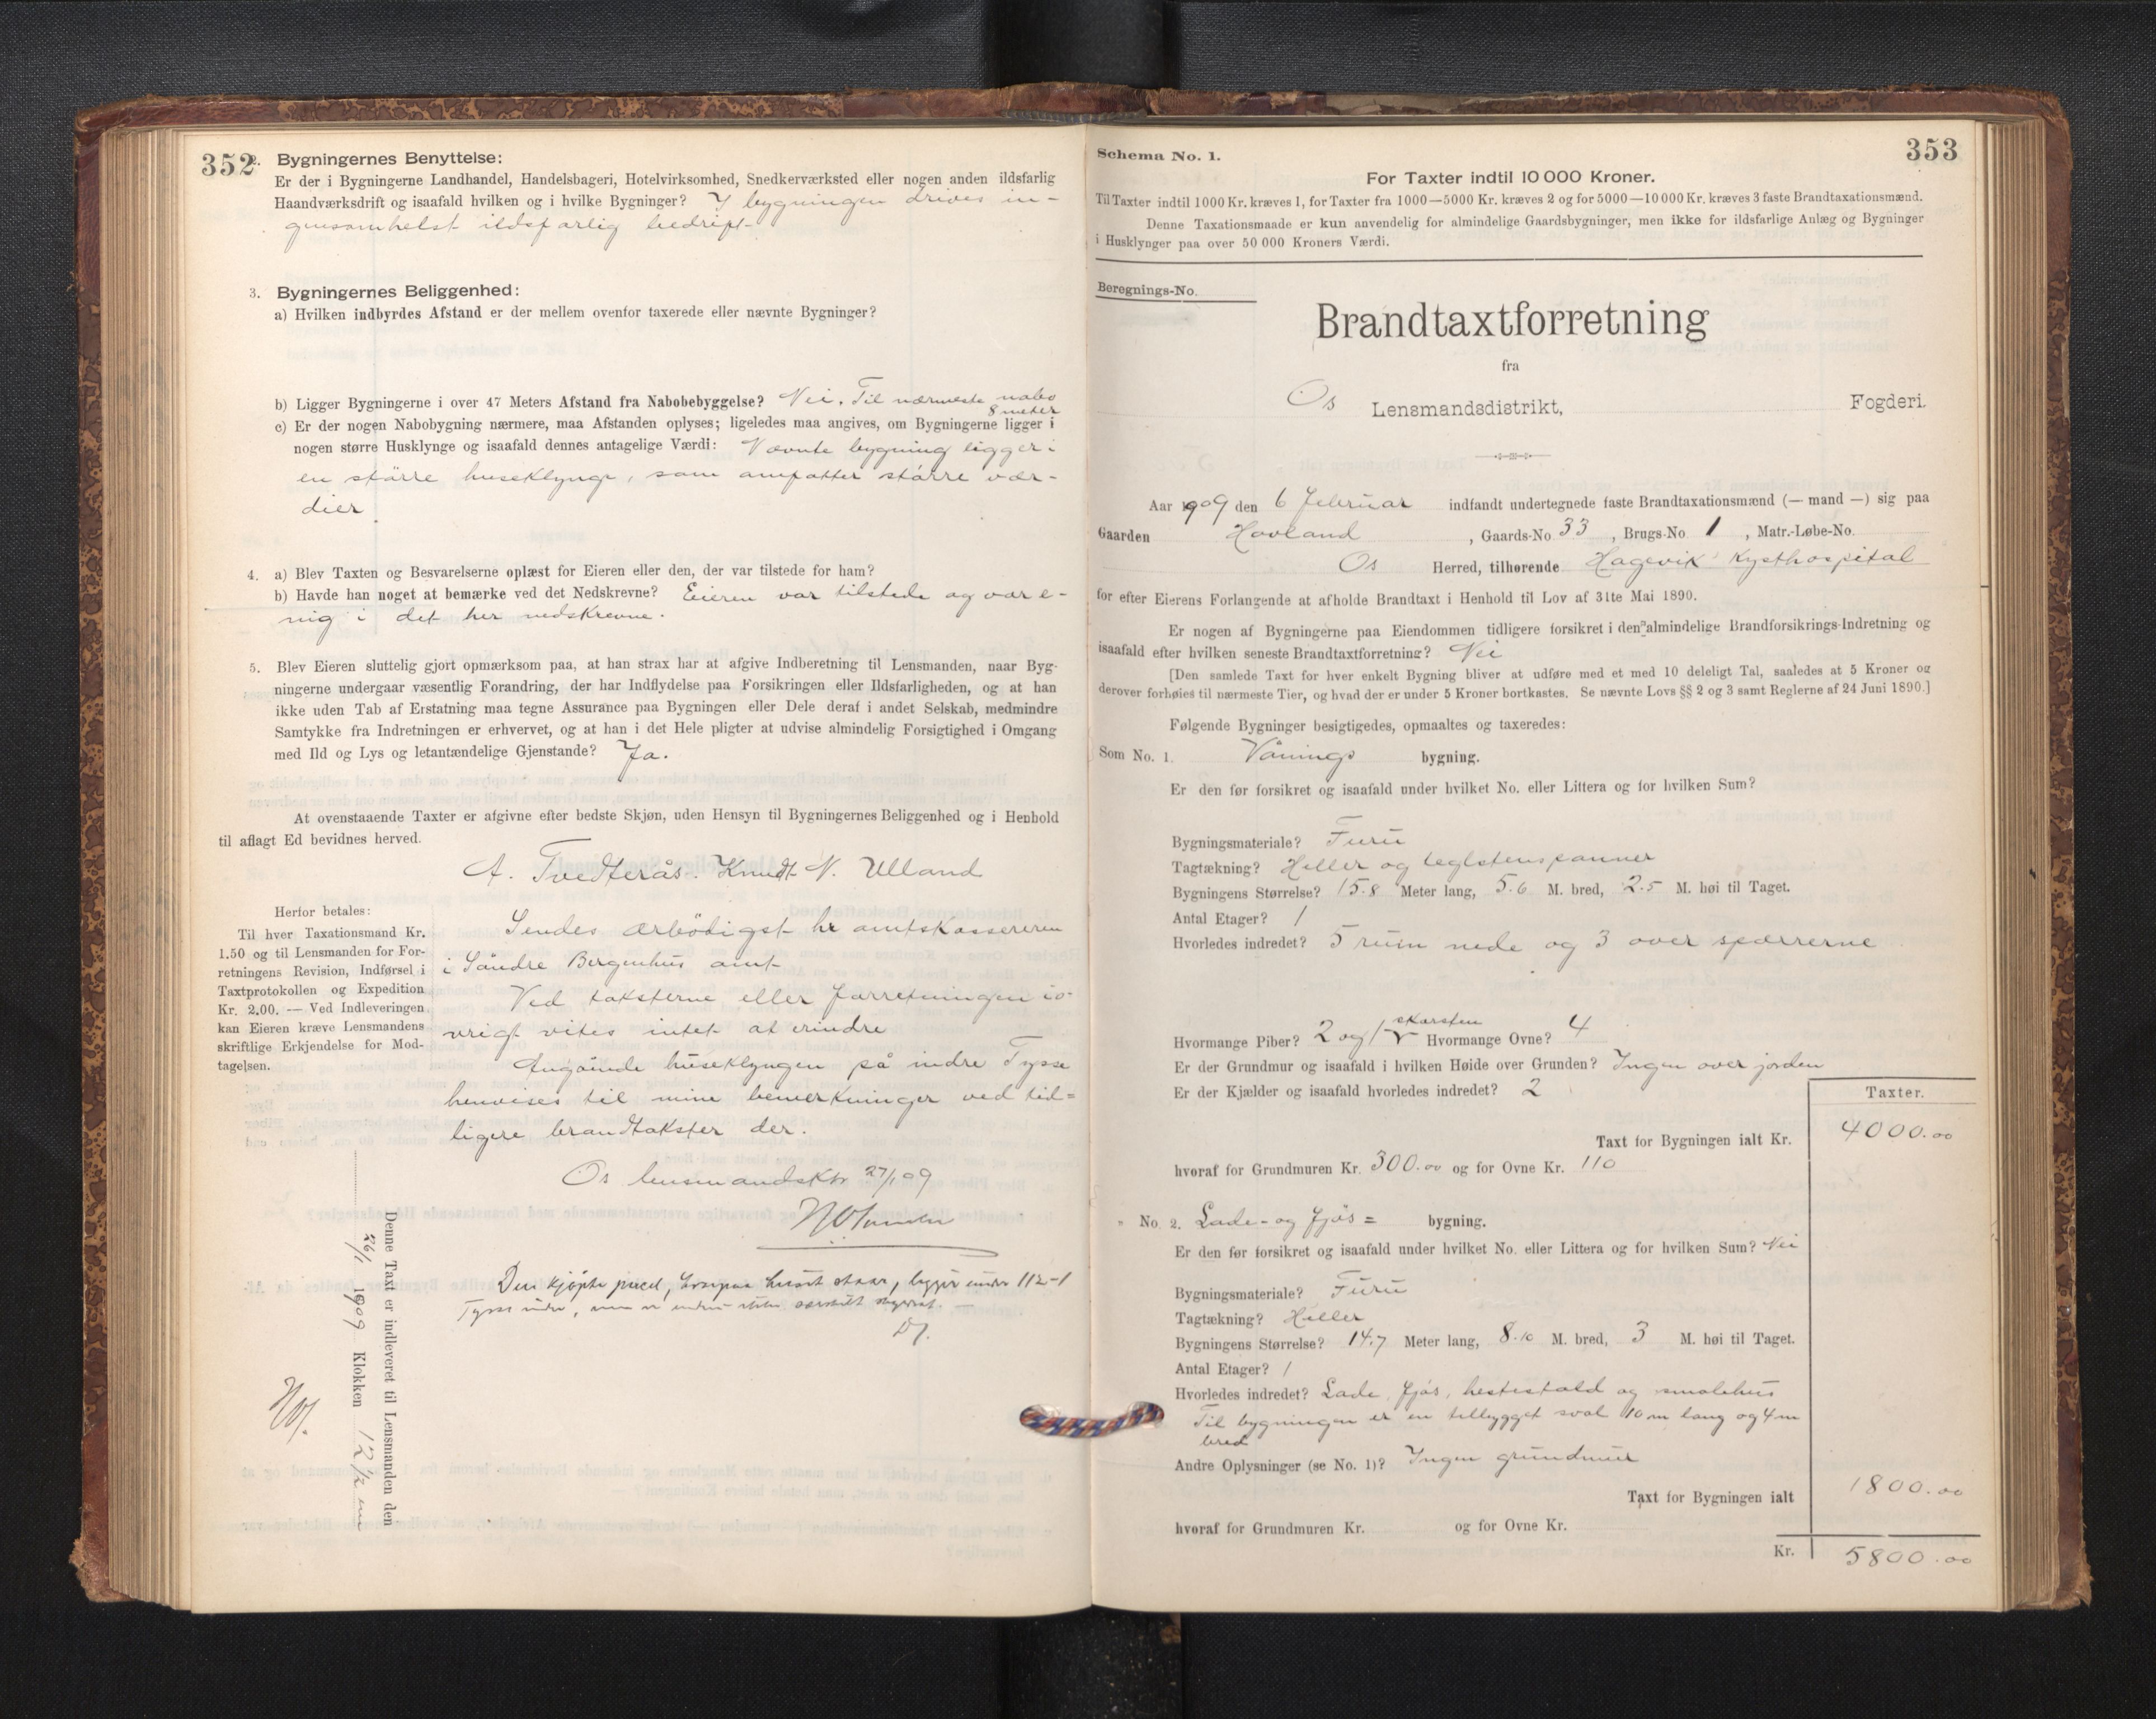 352
2. Bygningernes Benyttelse:
Er der i Bygningerne Landhandel, Handelsbageri, Hotelvirksomhed, Snedkerværksted eller nogen anden ildsfarlig
Haandværksdrift og isaafald hvilken og i hvilke Bygninger? I bygningen drives in-
gensomhelst ildsfarlig bedrift
3. Bygningernes Beliggenhed:
a) Hvilken indbyrdes Afstand er der mellem ovenfor taxerede eller nævnte Bygninger?
b) Ligger Bygningerne i over 47 Meters Afstand fra Nabobebyggelse? Nei. Til nærmeste nabo
8 meter
c) Er der nogen Nabobygning nærmere, maa Afstanden oplyses; ligeledes maa angives, om Bygningerne ligger i
nogen større Husklynge og isaafald dennes antagelige Værdi: Nævnte bygning ligger i
en større huseklynge, som omfatter større vær-
dier
4. a) Blev Taxten og Besvarelserne oplæst for Eieren eller den, der var tilstede for ham?
b) Havde han noget at bemærke ved det Nedskrevne? Eieren var tilstede og var e-
nig i det her nedskrevne.
5. Blev Eieren sluttelig gjort opmærksom paa, at han strax har at afgive Indberetning til Lensmanden, naar Byg-
ningerne undergaar væsentlig Forandring, der har Indflydelse paa Forsikringen eller Ildsfarligheden, og at han
ikke uden Tab af Erstatning maa tegne Assurance paa Bygningen eller Dele deraf i andet Selskab, medmindre
Samtykke fra Indretningen er erhvervet, og at han i det Hele pligter at udvise almindelig Forsigtighed i Omgang
med Ild og Lys og letantændelige Gjenstande? Ja.
At ovenstaaende Taxter er afgivne efter bedste Skjøn, uden Hensyn til Bygningernes Beliggenhed og i Henhold
til aflagt Ed bevidnes herved.
A. Tvedterås. Knudt N. Ulland
Herfor betales:
Til hver Taxationsmand Kr.
1.50 og til Lensmanden for For-
retningens Revision, Indførsel i
Taxtprotokollen og Expedition
Kr. 2.00. — Ved Indleveringen
kan Eieren kræve Lensmandens
skriftlige Erkjendelse for Mod-
tagelsen.
Sendes ærbödigst hr amtskassereren
i Söndre Bergenhus amt
Ved taksterne eller forretningen iö-
vrigt vites intet at erindre
Angående huseklyngen på indre Tysse
henvises til mine bemerkninger ved tid-
ligere brandtakster der.
Os lensmandsktr 27/1 09
Den kjøpte parcel, hvorpaa huset staar, ligger under 112-1
Tysse indre, men er endnu
Denne Taxt er indleveret til Lensmanden den
26/1 1909 Klokken 12 1/2 em
353
Schema No. 1.
For Taxter indtil 10 000 Kroner.
Til Taxter indtil 1000 Kr. kræves 1, for Taxter fra 1000—5000 Kr. kræves 2 og for 5000—10 000 Kr. kræves 3 faste Brandtaxationsmænd.
Denne Taxationsmaade er kun anvendelig for almindelige Gaardsbygninger, men ikke for ildsfarlige Anlæg og Bygninger
i Husklynger paa over 50 000 Kroners Værdi.
Beregnings-No.
Brandtaxtforretning
fra
Os Lensmandsdistrikt, Fogderi.
Aar 1909 den 6 Februar indfandt undertegnede faste Brandtaxationsmænd (— mand —) sig paa
Gaarden Hovland, Gaards-No 33, Brugs-No 1, Matr.-Løbe-No.
Os Herred, tilhørende Hagevik Kysthospital
for efter Eierens Forlangende at afholde Brandtaxt i Henhold til Lov af 31te Mai 1890.
Er nogen af Bygningerne paa Eiendommen tidligere forsikret i den almindelige Brandforsikrings-Indretning og
isaafald efter hvilken seneste Brandtaxtforretning? Nei
[Den samlede Taxt for hver enkelt Bygning bliver at udføre med et med 10 deleligt Tal, saaledes at 5 Kroner og
derover forhøies til nærmeste Tier, og hvad der er under 5 Kroner bortkastes. Se nævnte Lovs §§ 2 og 3 samt Reglerne af 24 Juni 1890.]
Følgende Bygninger besigtigedes, opmaaltes og taxeredes:
Som No. 1. Vånings bygning.
Er den før forsikret og isaafald under hvilket No. eller Littera og for hvilken Sum?
Bygningsmateriale? Furu
Tagtækning? Heller og teglstenspanner
Bygningens Størrelse? 15.8 Meter lang, 5.6 M. bred, 2.5 M. høi til Taget.
Antal Etager? 1
Hvorledes indredet? 5 rum nede og 3 over spærrerne
Hvormange Piber? 2 og 1 skorsten Hvormange Ovne? 4
Er der Grundmur og isaafald i hvilken Høide over Grunden? Ingen over jorden
Er der Kjælder og isaafald hvorledes indredet? 2
Taxter.
Taxt for Bygningen ialt Kr. 4000.00
hvoraf for Grundmuren Kr. 300.00 og for Ovne Kr. 110
" No. 2. Lade- og fjös= bygning.
Er den før forsikret og isaafald under hvilket No. eller Littera og for hvilken Sum? Nei
Bygningsmateriale? Furu
Tagtækning? Heller
Bygningens Størrelse? 14.7 Meter lang, 8.10 M. bred, 3 M. høi til Taget.
Antal Etager? 1
Hvorledes indredet? Lade, fjös, hestestald og smalehus
Til bygningen er en tilbygget sval 10 m lang og 4 m
bred
Andre Oplysninger (se No. 1)? Ingen grundmur
Taxt for Bygningen ialt 1800.00
hvoraf for Grundmuren Kr. og for Ovne Kr.
Kr. 5800.00